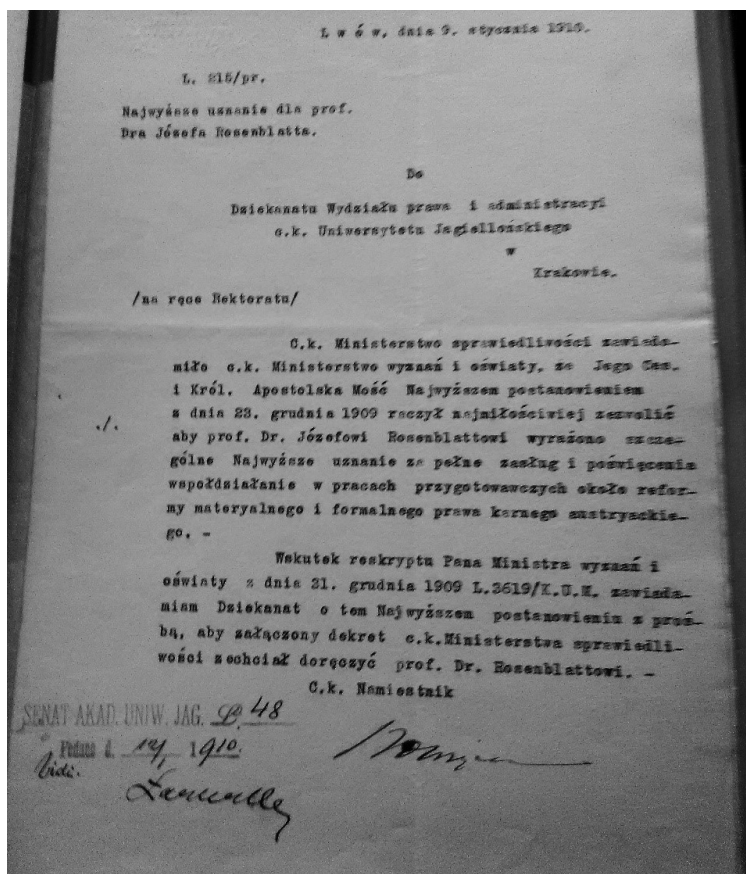 L w ó w, dnia 9. stycznia 1910.
L. 215/pr.
Najwyższe uznanie dla prof.
Dra Józefa Rosenblatta.
Do
Dziekanatu Wydziału prawa i administracyi
c.k. Uniwersytetu Jagiellońskiego
w
Krakowie.
/na ręce Rektoratu/
C.k. Ministerstwo sprawiedliwości zawiada-
miło c.k. Ministerstwo wyznań i oświaty, że Jego Ces.
i Król. Apostolska Mość Najwyższem postanowieniem
z dnia 23. grudnia 1909 raczył najmiłościwiej zezwolić
./.
aby prof. Dr. Józefowi Rosenblattowi wyrażono szcze-
gólne Najwyższe uznanie za pełne zasług i poświęcenia
współdziałanie w pracach przygotowawczych około refor-
my materyalnego i formalnego prawa karnego austryackie-
go. -
Wskutek reskryptu Pana Ministra wyznań i
oświaty z dnia 31. grudnia 1909 L.3619/K.U.M. zawiada-
miam Dziekanat o tem Najwyższem postanowieniu z proś-
bą, aby załączony dekret c.k.Ministerstwa sprawiedli-
wości zechciał doręczyć prof. Dr. Rosenblattowi. -
C.k. Namiestnik
SENAT AKAD. UNIW. JAG. L. 48
Podano d. 12/1 1910.
Vidi.